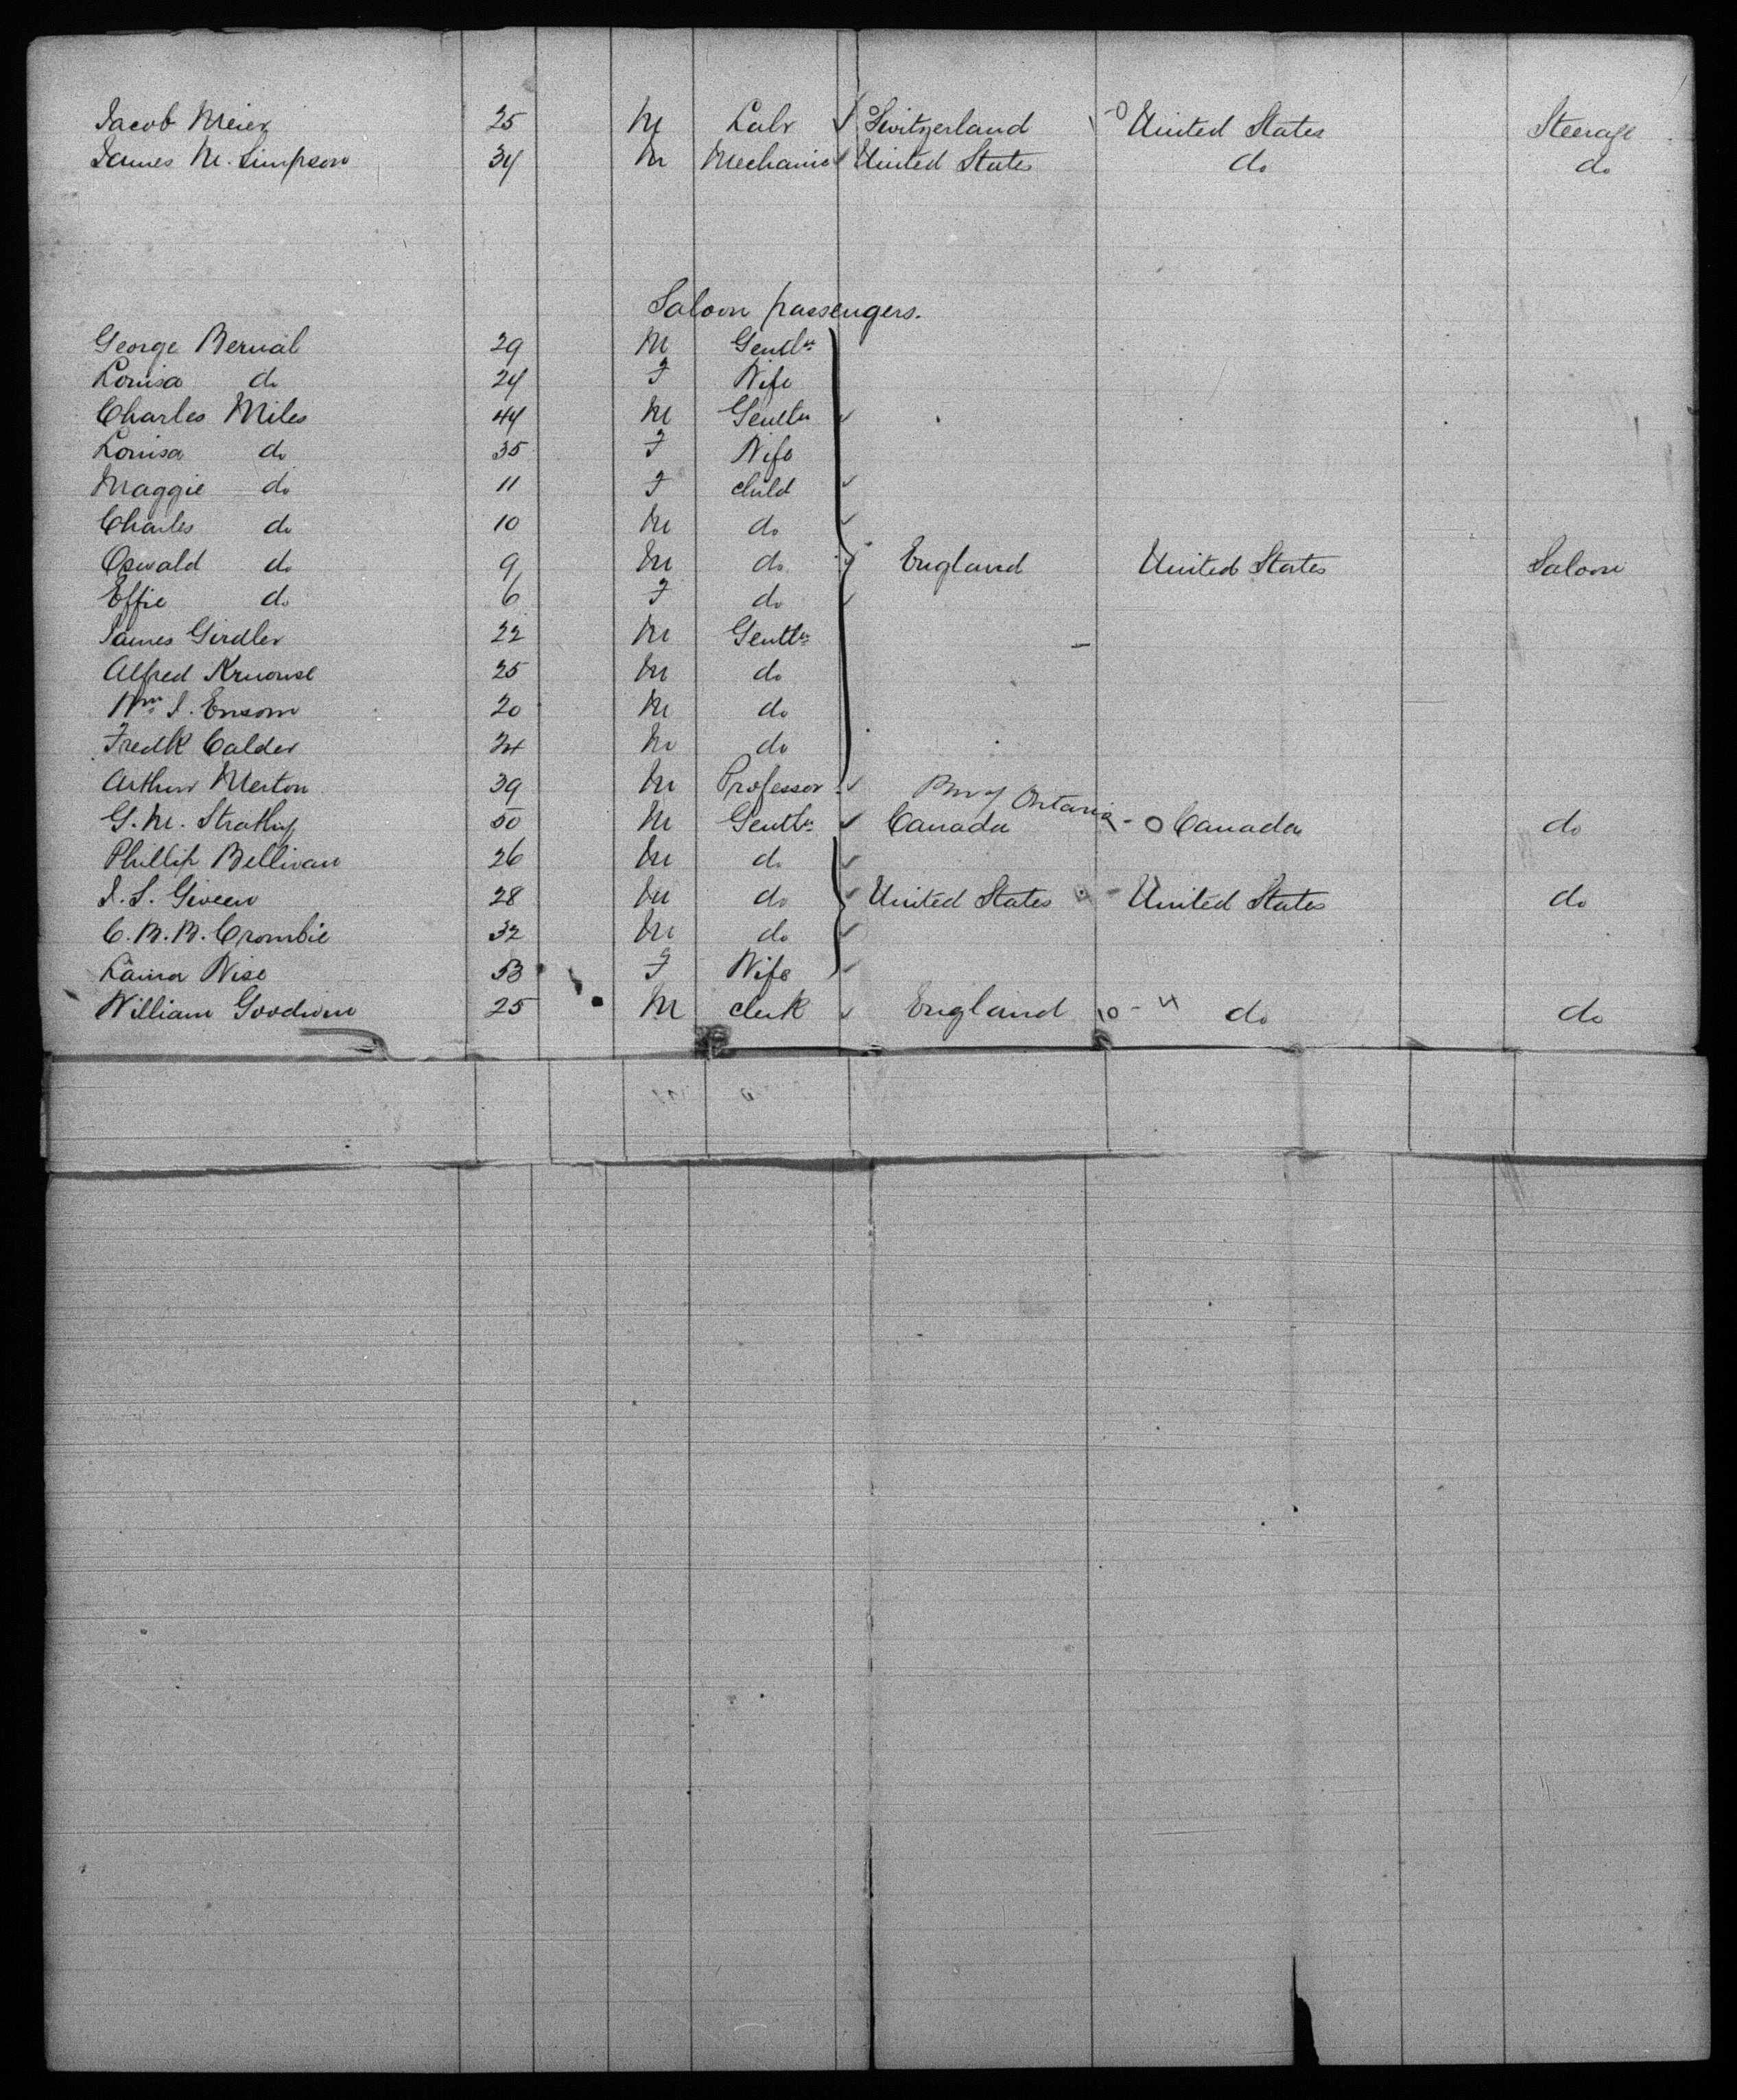 Jacob Meier 25 M Labr Switzerland United States Steerage
James M. Simpson 34 M Mechanic United States do do
Saloon passengers.
George Bernal 29 M Gentln
Louisa do 24 F Wife
Charles Miles 44 M Gentln
Louisa do 35 F Wife
Maggie do 11 F child
Charles do 10 M do
Oswald do 9 M do England United States Saloon
Effie do 6 F do
James Girdler 22 M Gentln
Alfred 25 M do
Wm J. Ensom 20 M do
Fredk Calder 24 M do
Arthur Merton 39 M Professor
Ontario
G. M. 50 M Gentln Canada Canada do
Phillip Bellivan 26 M do
J. S. 28 M do United States United States do
C. B. B. Crombie 32 M do
Laura Wise 53 F Wife
William Goodwin 25 M clerk England do do